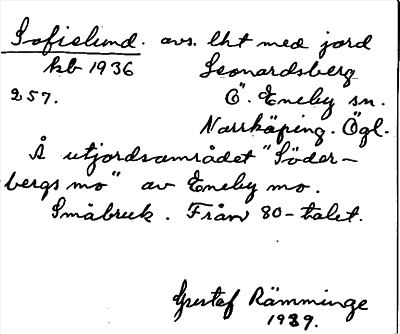 Sofielund. avs. lht med jord
kb 1936 Leonardsberg
257. Ö. Eneby sn.
Norrköping. Ögl.
Å utjordsområdet "Söder-
bergs mo" av Eneby mo.
Småbruk. Från 80-talet.
Gustaf Rämminge
1939.